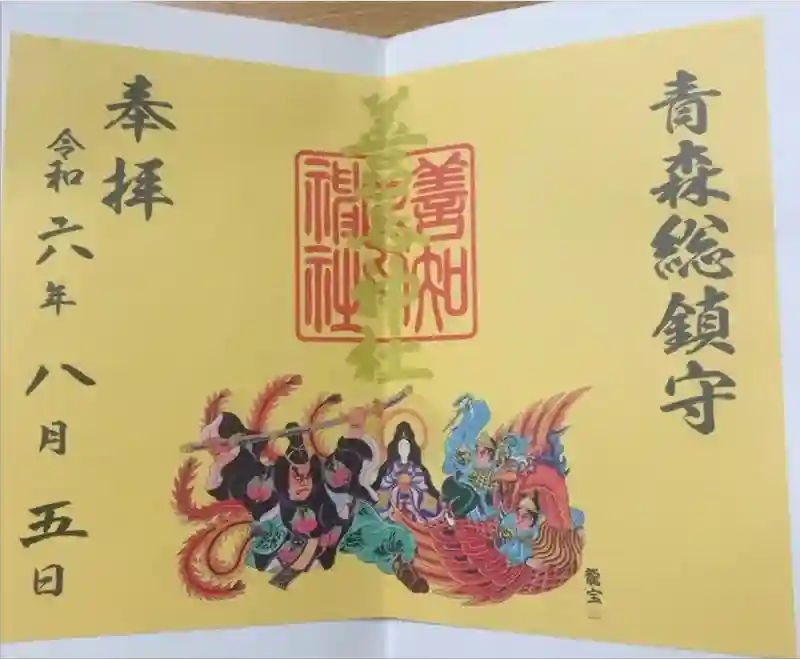 青森総鎮守
善知鳥神社
善知
神社
奉拝
令和六年八月五日
龍宝